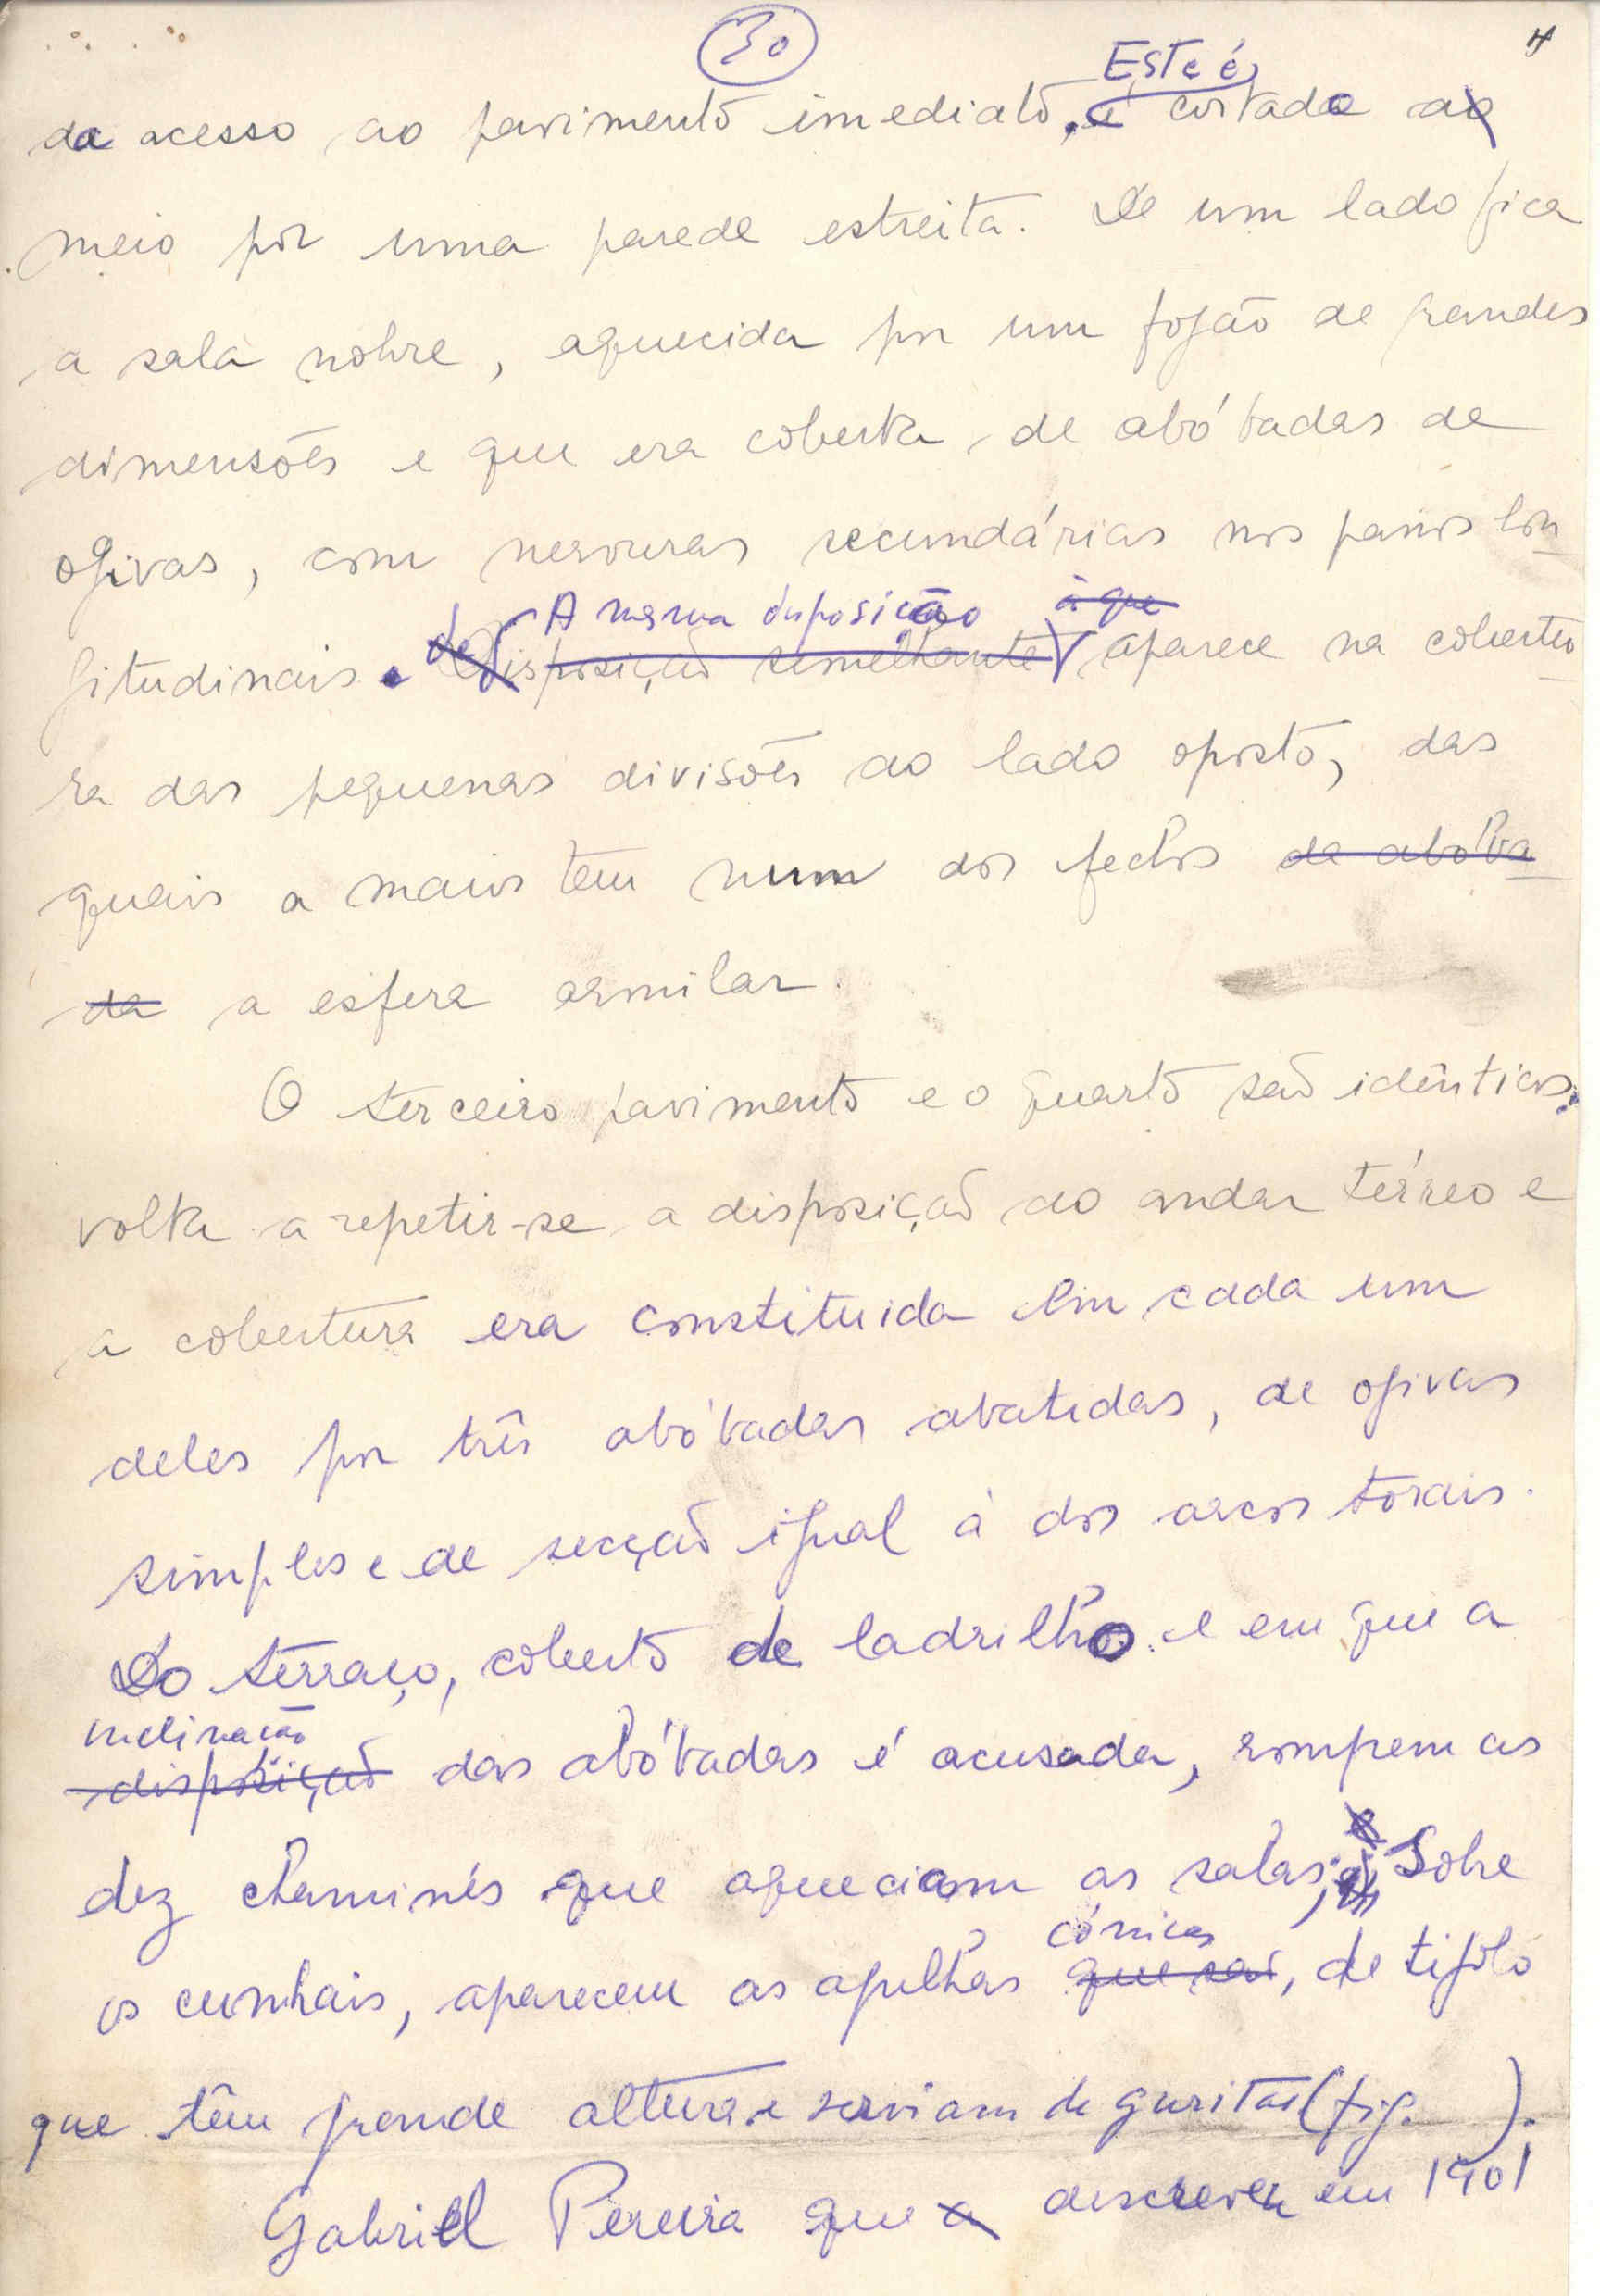 30
4
Este é
da acesso ao pavimento imediato, é cortado ao
meio por uma parede estreita. De um lado fica
a sala nobre, aquecida por um fogão de grandes
dimensões e que era coberta de abóbadas de
ogivas, com nervuras secundárias nos panos lon
A mesma disposição à que
gitudinais. de disposição semelhante aparece na cobertu
ra das pequenas divisões do lado oposto, das
quais a maior tem num dos fechos da abóba
da a esfera armilar.
O terceiro pavimento e o quarto são idênticos:
volta a repetir-se a disposição do andar térreo e
a cobertura era constituida em cada um
deles por três abóbadas abatidas, de ogivas
simples e de secção igual à dos arcos torais.
Do terraço, coberto de ladrilho e em que a
inclinação
disposição das abóbadas é acusada, rompem as
dez chaminés que aqueciam as salas; Sobre
cónicas
os cunhais, aparecem as agulhas que são, de tijolo
que têm grande altura e serviam de guaritas (fig. ).
Gabriel Pereira que a descreveu em 1901